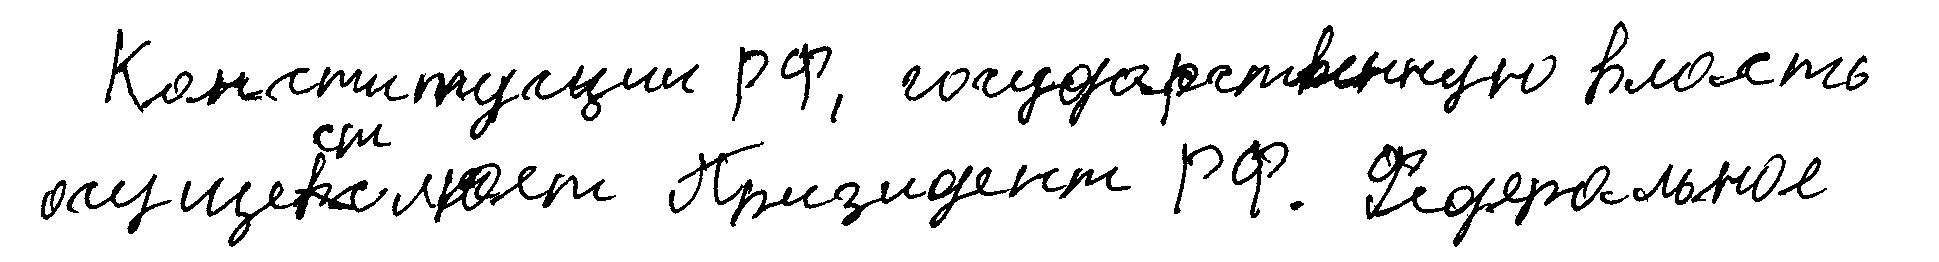 Конституции РФ, государственную власть
осуществляет Президент РФ. Федеральное